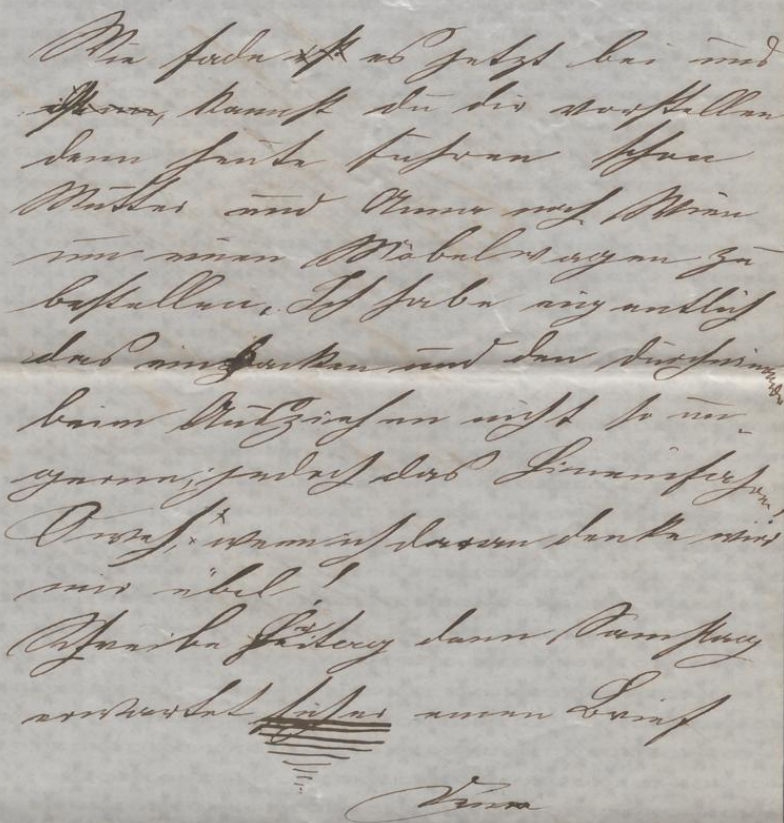 Wie fade ist es jetzt bei uns
ist, kannst du dir vorstellen
denn heute fuhren schon
Mutter und Anna nach Wien
um einen Möbelwagen zu
bestellen. Ich habe eigentlich
das einpacken und den
beim Ausziehen nicht so un-
gerne, jedoch das Hineinfahren
O weh, wenn ich daran denke wird
mir übel!
Schreibe Freitag denn Samstag
erwartet sicher einen Brief